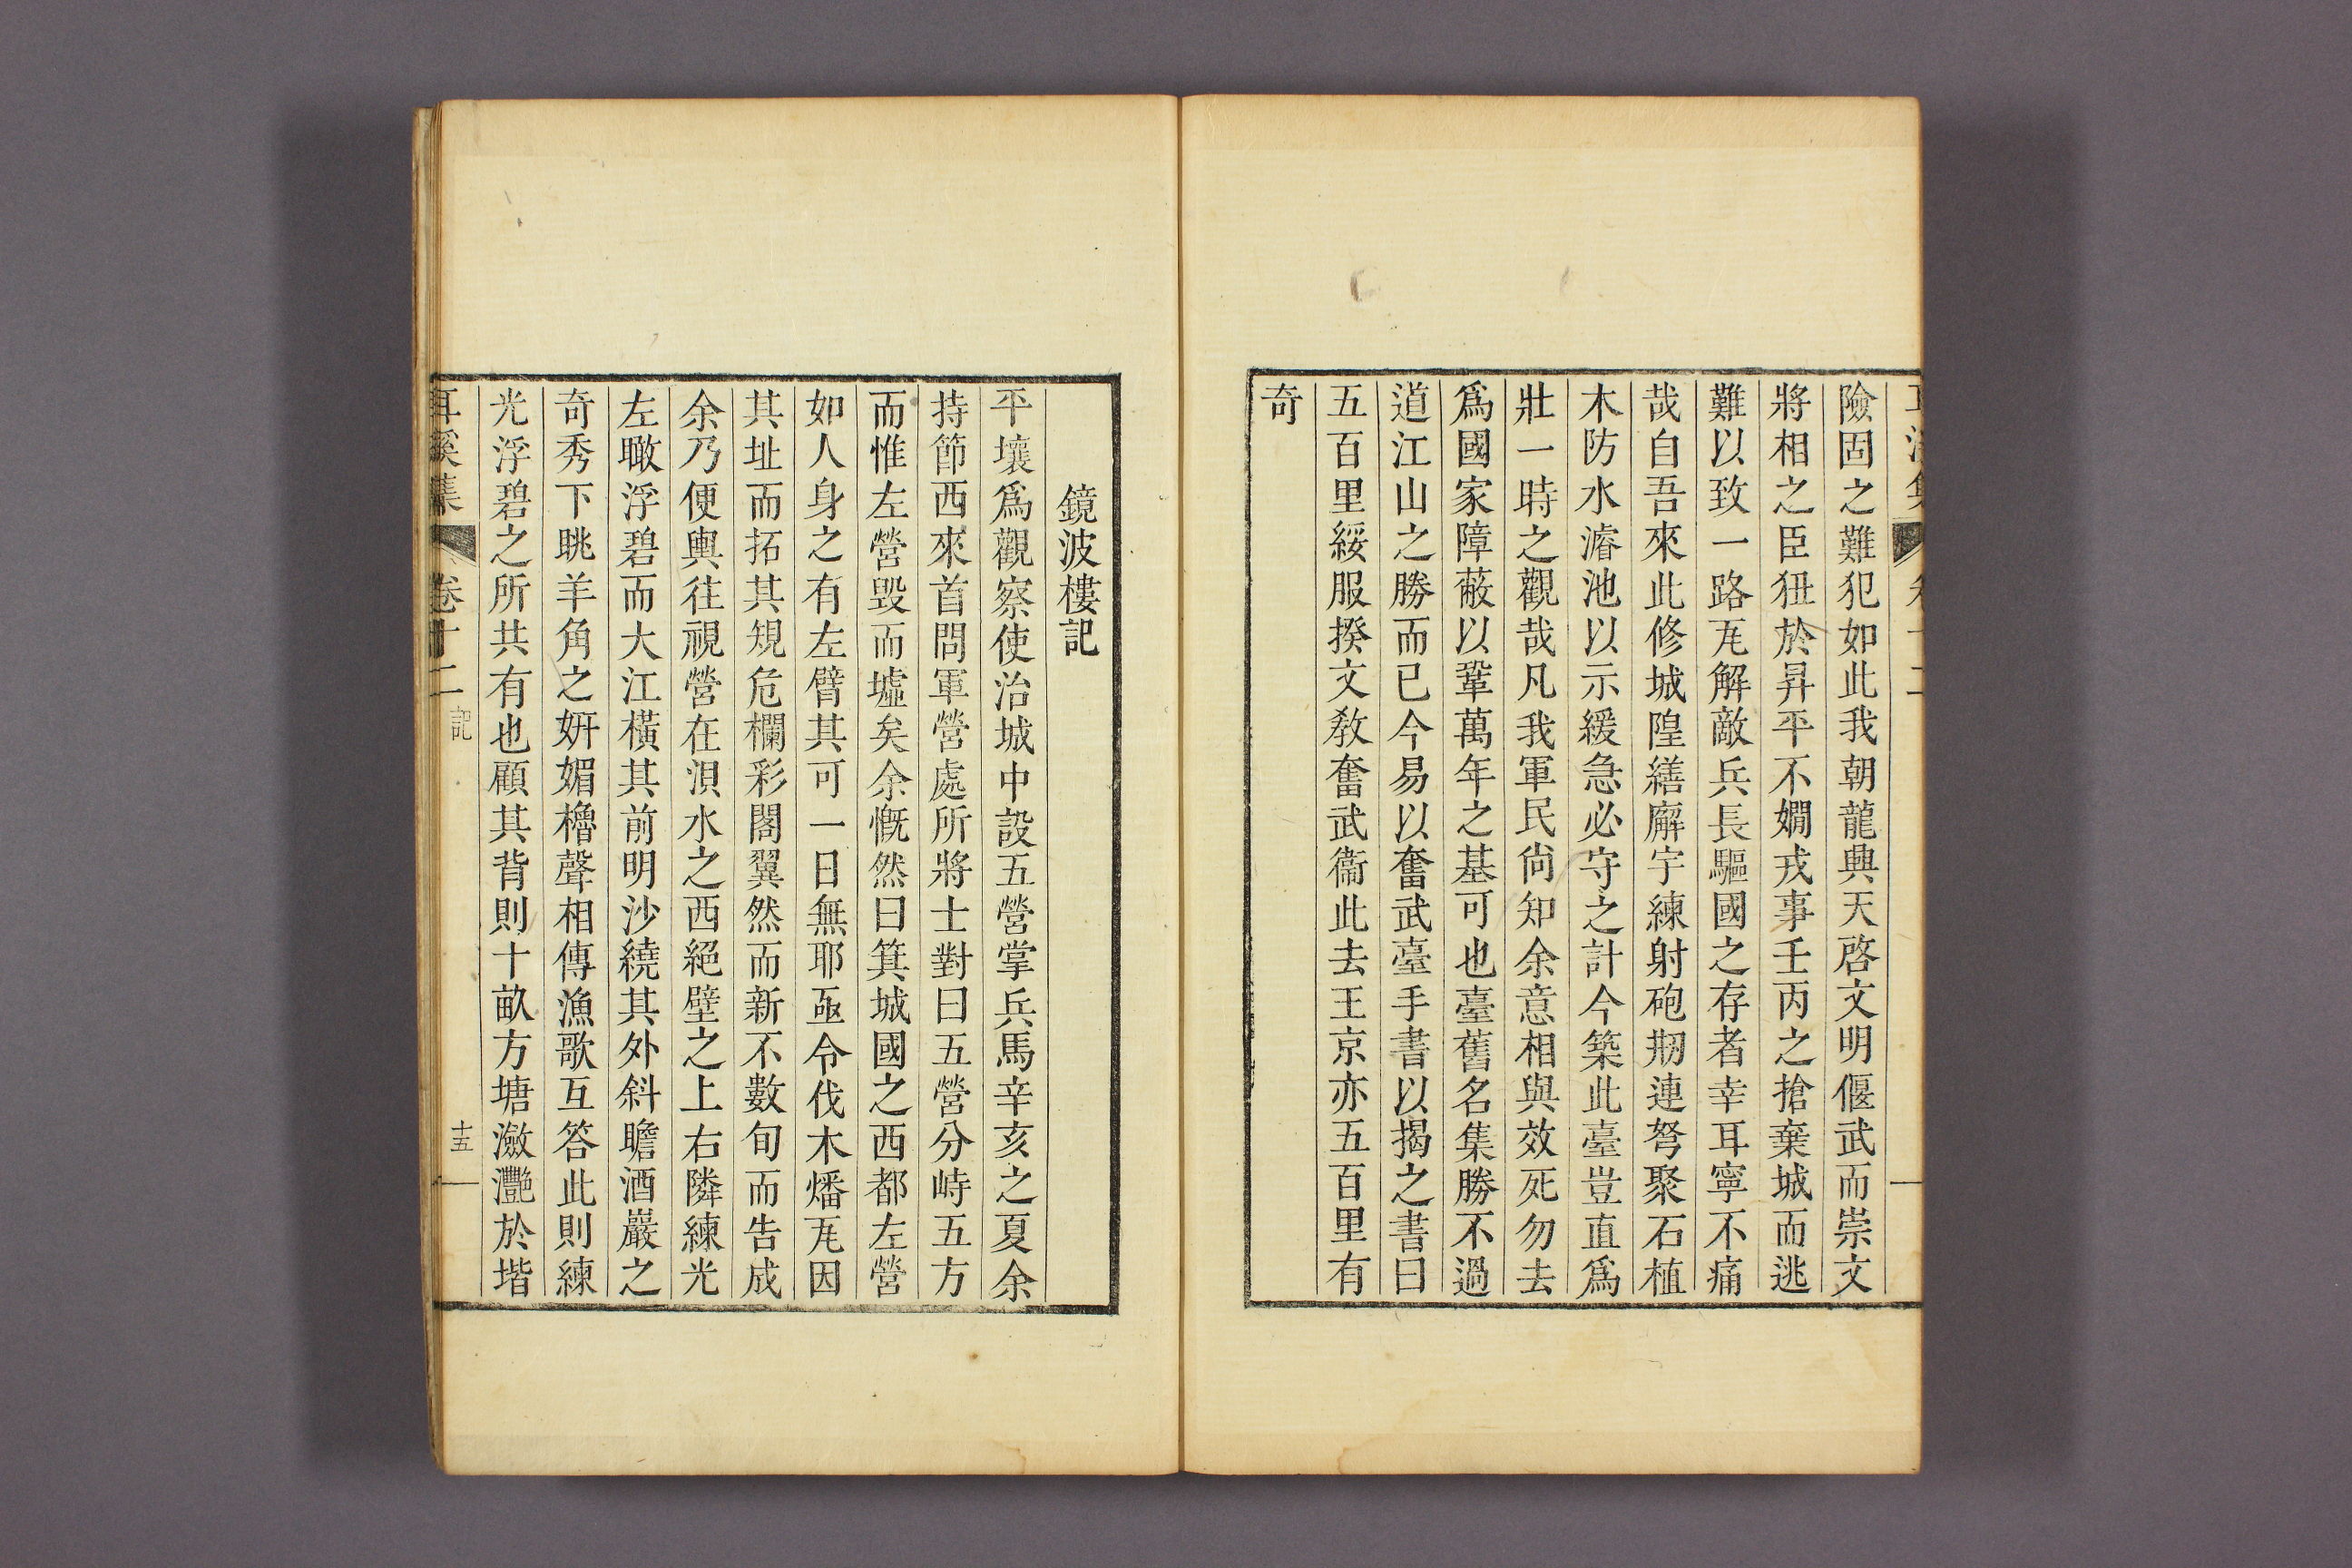 險固之難犯如此我朝龍興天啓文明偃武而崇文
將相之臣狃於昇平不嫺戎事壬丙之搶棄城而逃
難以致一路瓦解敵兵長驅國之存者幸耳寧不痛
哉自吾來此修城隍繕廨宇練射砲剏連弩聚石植
木防水濬池以示緩急必守之計今築此臺豈直爲
壯一時之觀哉凡我軍民尙知余意相與效死勿去
爲國家障蔽以鞏萬年之基可也臺舊名集勝不過
道江山之勝而已今易以奮武臺手書以揭之書曰
五百里綏服揆文敎奮武衞此去王京亦五百里有
奇
鏡波樓記
平壤爲觀察使治城中設五營掌兵馬辛亥之夏余
持節西來首問軍營處所將士對曰五營分峙五方
而惟左營毀而墟矣余慨然曰箕城國之西都左營
如人身之有左臂其可一日無耶亟令伐木燔瓦因
其址而拓其規危欄彩閣翼然而新不數旬而告成
余乃便輿往視營在浿水之西絕壁之上右隣練光
左瞰浮碧而大江橫其前明沙繞其外斜瞻酒巖之
奇秀下眺羊角之姸媚櫓聲相傳漁歌互答此則練
光浮碧之所共有也顧其背則十畝方塘瀲灩於堦
耳溪集 卷十二 記 十五